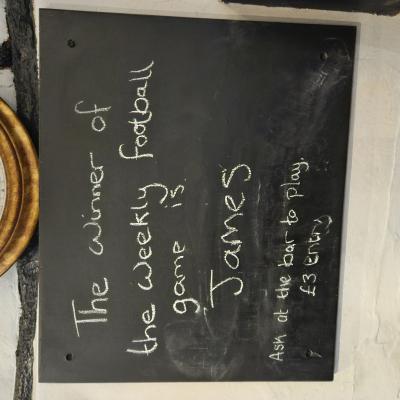 The winner of
the weekly football
game is.
James
Ask at the bar to play.
£3 entry